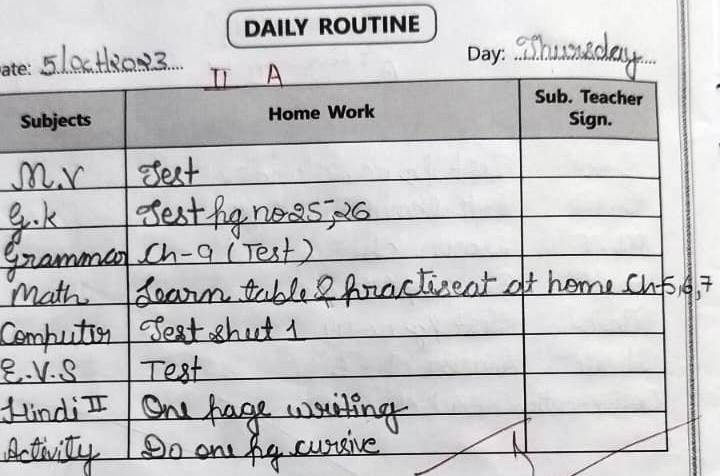 DAILY ROUTINE
ate: 5/oct/2023 Day: Thursday
II A
Subjects Home Work Sub. Teacher Sign.
M.V Test
G.K Test pg no 25, 26
Grammar Ch-9 (Test)
Math Learn table & practise at at home Ch-5,6,7
Computer Test sheet 1
E.V.S Test
Hindi II One page writing
Activity Do one pg cursive